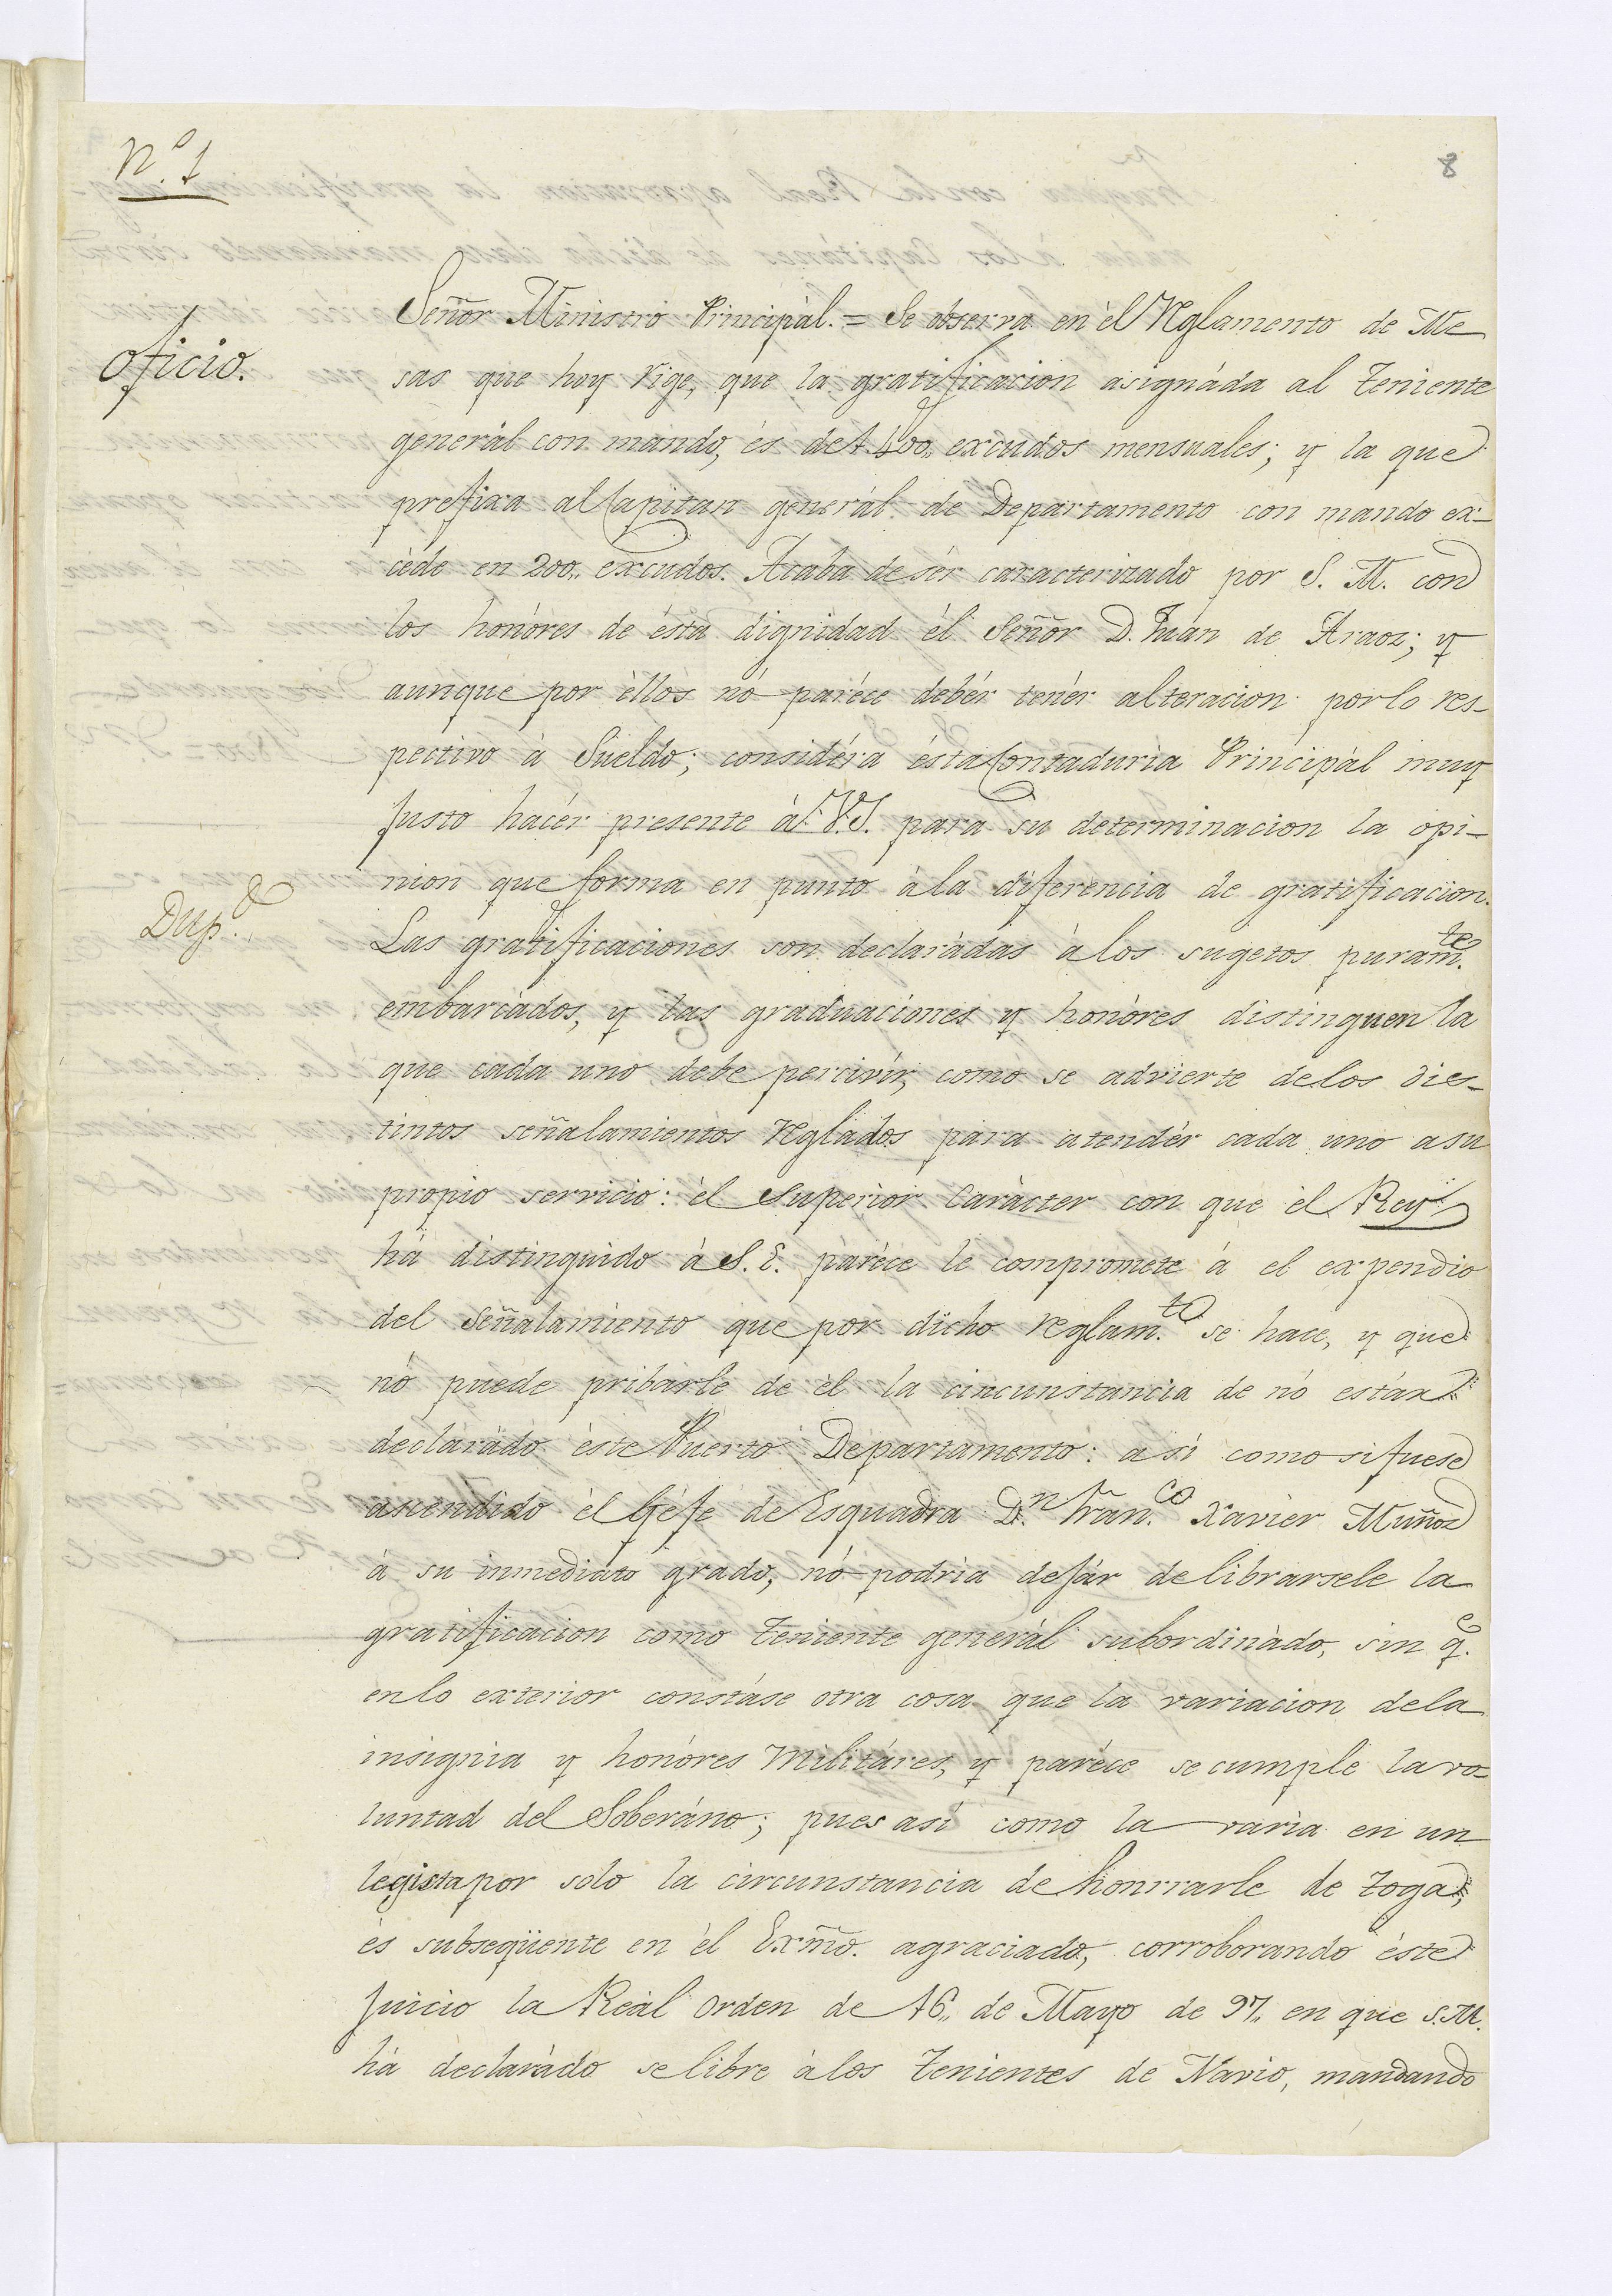 N.º 1
8
oficio.
Señor Ministro Principàl. = Se observa en èl Reglamento de Me
sas que hoy rige, que la gratificacion asignàda al Teniente
generàl con mando, és de 1.400,, excudos mensuales; y la que
prefixa al Capitan generàl de Departamento con mando ex-
cede en 200,, excudos. Acaba de sér caracterizado por S. M. con
los honóres de ésta dignidad él Señor D. Juan de Araoz; y
aunque por èllos nó paréce debér tenér alteracion por lo res-
pectivo à Sueldo; considéra ésta Contaduria Principàl muy
Justo hacér presente à V.S. para su determinacion la opi-
nion que forma en punto à la diferencia de gratificacion.
Dup.do
Las gratificaciones son declaràdas à los sugetos puram.te
embarcàdos, y las graduaciones y honòres distinguen la
que cada uno debe percivír, como se advierte de los dis-
tintos señalamientos reglados para atendér cada uno a su
propio servicio: èl Superior Caràcter con que èl Rey
hà distinguido à S. E. paréce le compromete à el expendio
del Señalamiento que por dicho reglam.to se hace, y que
nó puede pribarle de èl la circunstancia de nó estár
declaràdo èste Puerto Departamento: asi como si fuese
ascendido èl Géfe de Esquadra D.n Fran.co Xavier Muñoz
à su inmediato grado, nó podria dejár de librarsele la
gratificacion como Teniente generàl subordinàdo, sin q.e
en lo exterior constáse otra cosa que la variacion de la
insignia y honóres Militáres, y paréce se cumple la vo-
luntad del Soberáno; pues asi como la varia en un
legista por solo la circunstancia de honrrarle de Toga,
ès subseqüente en èl Exmõ. agraciado, corroborando èste
Juicio la Reàl orden de 16,, de Mayo de 97,, en que S.M.
hà declaràdo se libre à los Tenientes de Navio, mandando